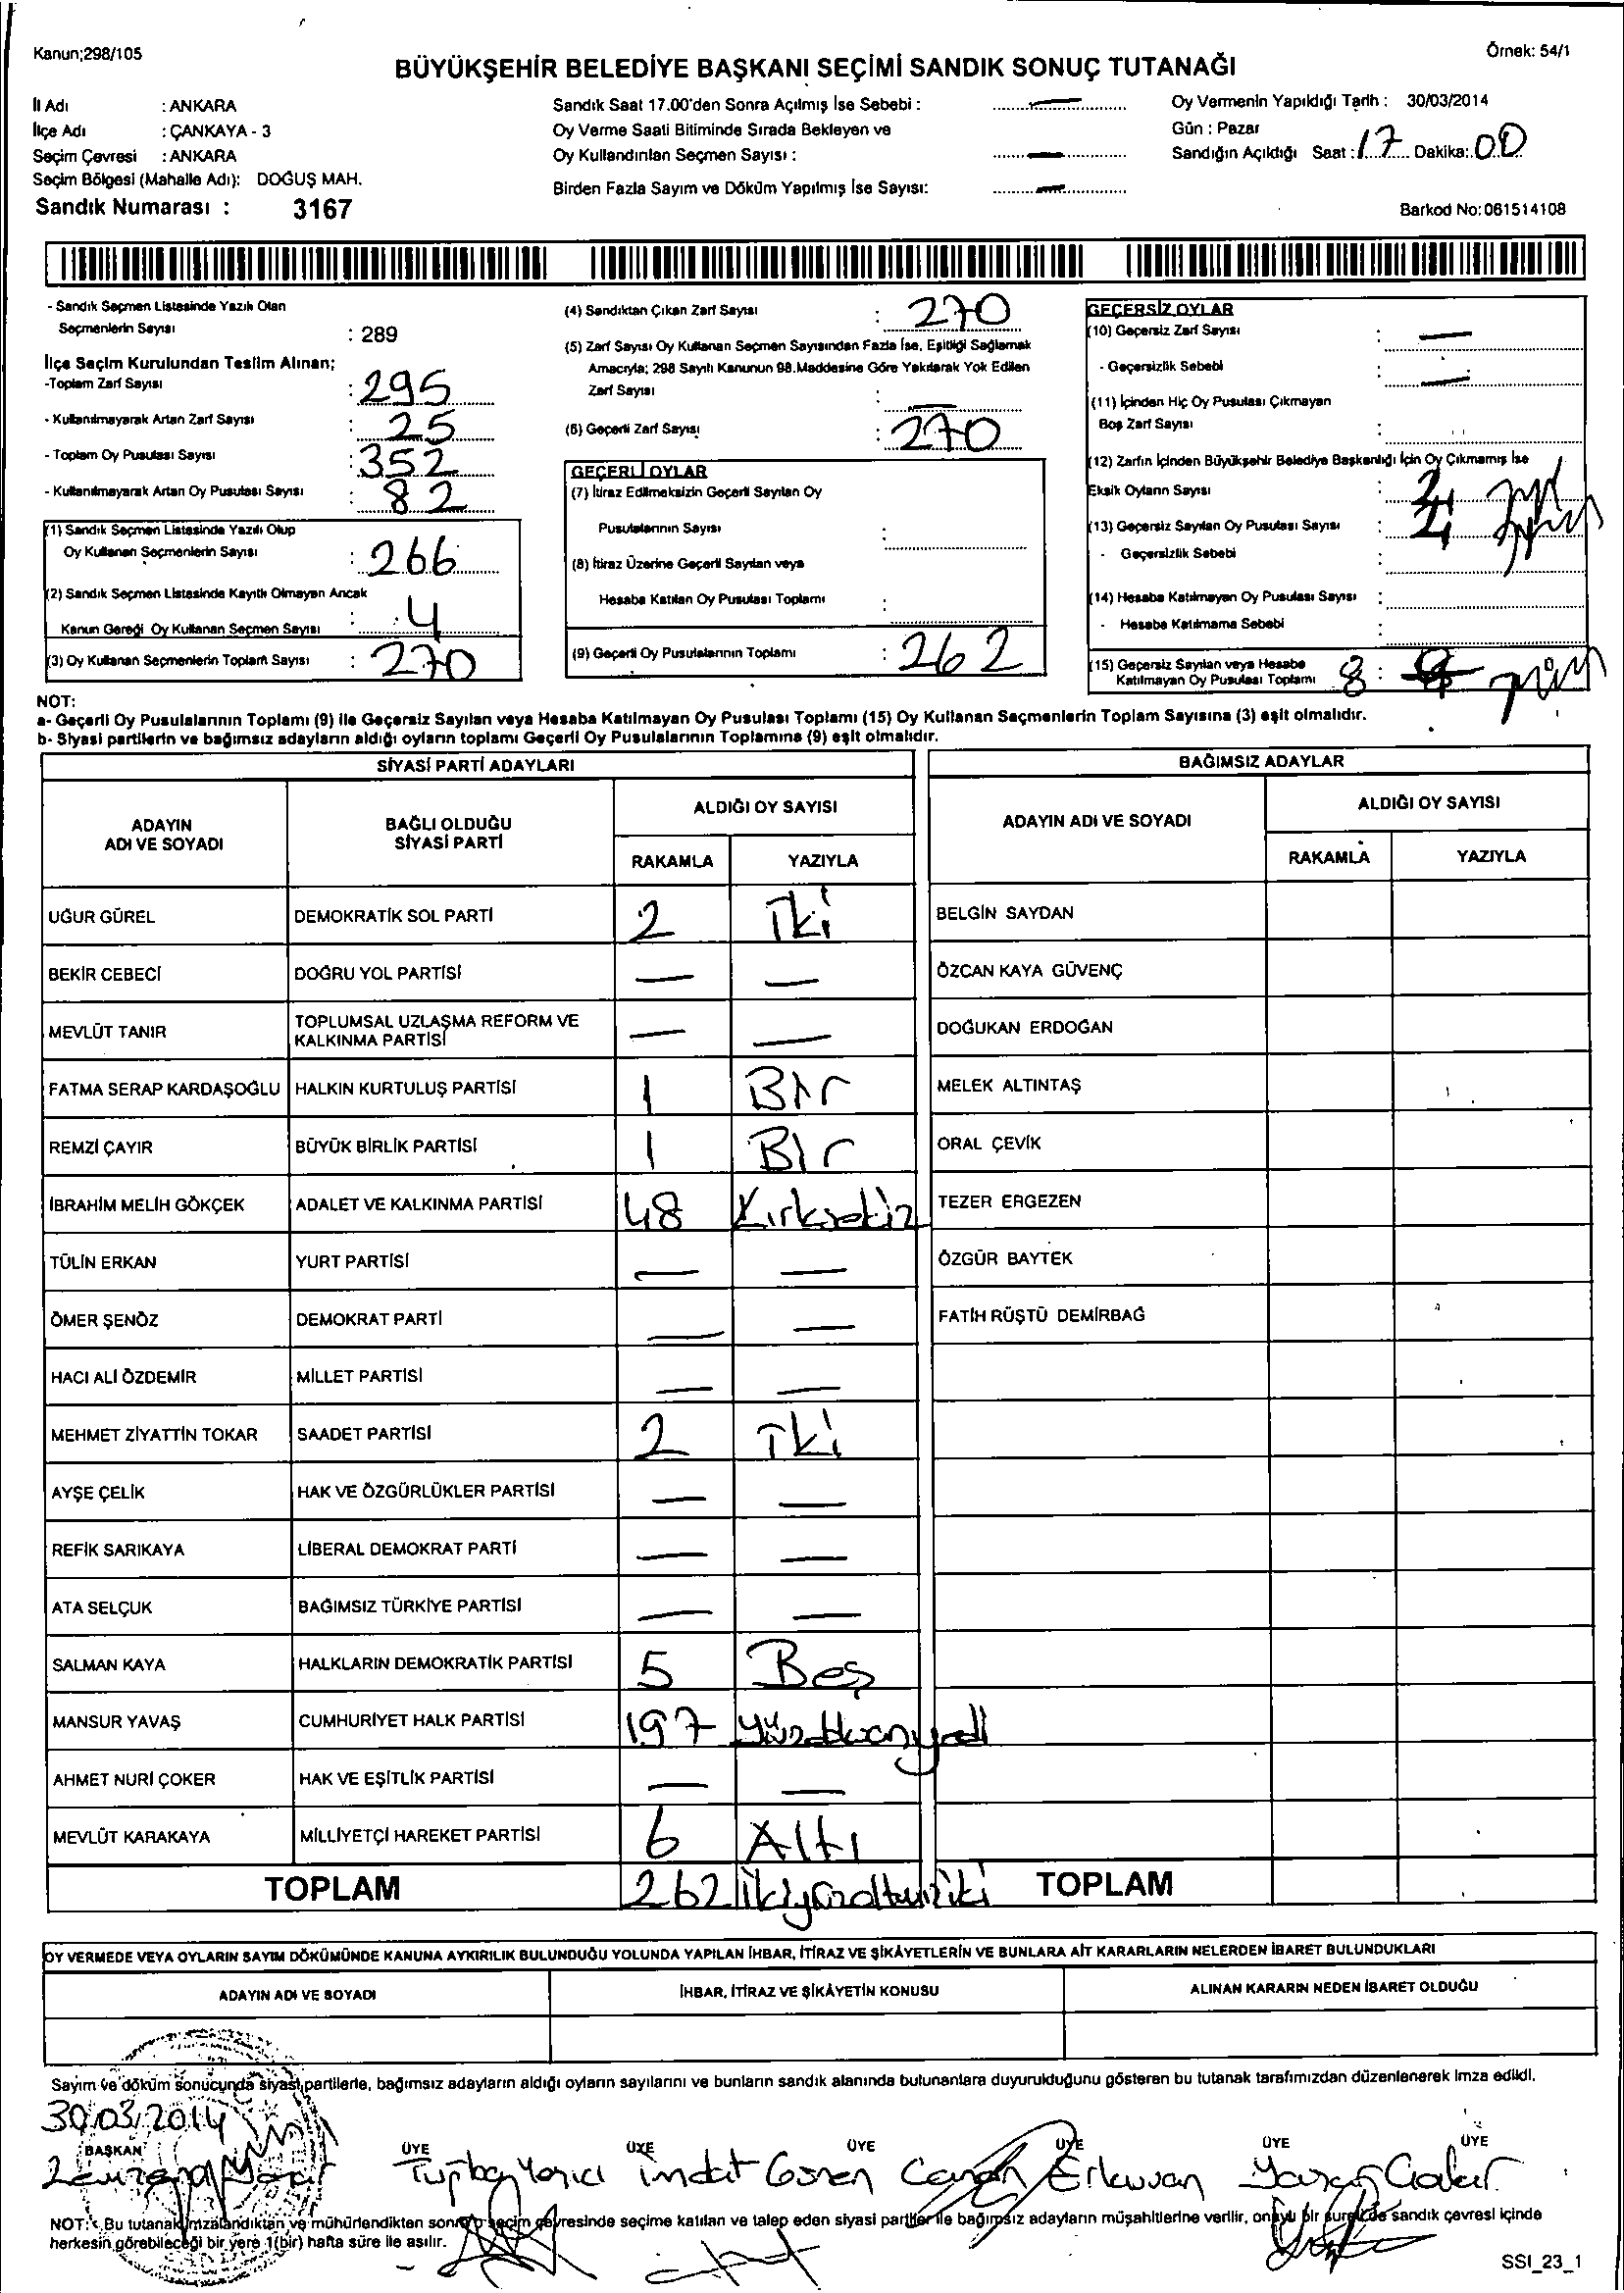 Kanun;298/105
Örnek: 54/1
BÜYÜKŞEHİR BELEDİYE BAŞKANI SEÇİMİ SANDIK SONUÇ TUTANAĞI
İl Adı : ANKARA
İlçe Adı : ÇANKAYA - 3
Seçim Çevresi : ANKARA
Seçim Bölgesi (Mahalle Adı): DOĞUŞ MAH.
Sandık Numarası : 3167
Sandık Saat 17.00'den Sonra Açılmış İse Sebebi : —
Oy Verme Saati Bitiminde Sırada Bekleyen ve
Oy Kullandırılan Seçmen Sayısı : —
Birden Fazla Sayım ve Döküm Yapılmış İse Sayısı: —
Oy Vermenin Yapıldığı Tarih : 30/03/2014
Gün : Pazar
Sandığın Açıldığı Saat : 17 Dakika: 00
Barkod No: 061514108
- Sandık Seçmen Listesinde Yazılı Olan
Seçmenlerin Sayısı : 289
İlçe Seçim Kurulundan Teslim Alınan;
-Toplam Zarf Sayısı : 295
- Kullanılmayarak Artan Zarf Sayısı : 25
- Toplam Oy Pusulası Sayısı : 352
- Kullanılmayarak Artan Oy Pusulası Sayısı : 82
(1) Sandık Seçmen Listesinde Yazılı Olup
Oy Kullanan Seçmenlerin Sayısı : 266
(2) Sandık Seçmen Listesinde Kayıtlı Olmayan Ancak
Kanun Gereği Oy Kullanan Seçmen Sayısı : 4
(3) Oy Kullanan Seçmenlerin Toplam Sayısı : 270
(4) Sandıktan Çıkan Zarf Sayısı : 270
(5) Zarf Sayısı Oy Kullanan Seçmen Sayısından Fazla İse, Eşitliği Sağlamak
Amacıyla; 298 Sayılı Kanunun 98.Maddesine Göre Yakılarak Yok Edilen
Zarf Sayısı : —
(6) Geçerli Zarf Sayısı : 270
GEÇERLİ OYLAR
(7) İtiraz Edilmeksizin Geçerli Sayılan Oy
Pusulalarının Sayısı :
(8) İtiraz Üzerine Geçerli Sayılan veya
Hesaba Katılan Oy Pusulası Toplamı :
(9) Geçerli Oy Pusulalarının Toplamı : 262
GEÇERSİZ OYLAR
(10) Geçersiz Zarf Sayısı : —
- Geçersizlik Sebebi : —
(11) İçinden Hiç Oy Pusulası Çıkmayan
Boş Zarf Sayısı :
(12) Zarfın İçinden Büyükşehir Belediye Başkanlığı İçin Oy Çıkmamış İse
Eksik Oyların Sayısı :
(13) Geçersiz Sayılan Oy Pusulası Sayısı :
- Geçersizlik Sebebi :
(14) Hesaba Katılmayan Oy Pusulası Sayısı :
- Hesaba Katılmama Sebebi :
(15) Geçersiz Sayılan veya Hesaba
Katılmayan Oy Pusulası Toplamı 8 :
NOT:
a- Geçerli Oy Pusulalarının Toplamı (9) ile Geçersiz Sayılan veya Hesaba Katılmayan Oy Pusulası Toplamı (15) Oy Kullanan Seçmenlerin Toplam Sayısına (3) eşit olmalıdır.
b- Siyasi partilerin ve bağımsız adayların aldığı oyların toplamı Geçerli Oy Pusulalarının Toplamına (9) eşit olmalıdır.
SİYASİ PARTİ ADAYLARI
ADAYIN ADI VE SOYADI
BAĞLI OLDUĞU SİYASİ PARTİ
ALDIĞI OY SAYISI
RAKAMLA YAZIYLA
UĞUR GÜREL DEMOKRATİK SOL PARTİ 2 İki
BEKİR CEBECİ DOĞRU YOL PARTİSİ — —
MEVLÜT TANIR TOPLUMSAL UZLAŞMA REFORM VE KALKINMA PARTİSİ — —
FATMA SERAP KARDAŞOĞLU HALKIN KURTULUŞ PARTİSİ 1 Bir
REMZİ ÇAYIR BÜYÜK BİRLİK PARTİSİ 1 Bir
İBRAHİM MELİH GÖKÇEK ADALET VE KALKINMA PARTİSİ 48 Kırksekiz
TÜLİN ERKAN YURT PARTİSİ — —
ÖMER ŞENÖZ DEMOKRAT PARTİ — —
HACI ALİ ÖZDEMİR MİLLET PARTİSİ — —
MEHMET ZİYATTİN TOKAR SAADET PARTİSİ 2 İki
AYŞE ÇELİK HAK VE ÖZGÜRLÜKLER PARTİSİ — —
REFİK SARIKAYA LİBERAL DEMOKRAT PARTİ — —
ATA SELÇUK BAĞIMSIZ TÜRKİYE PARTİSİ — —
SALMAN KAYA HALKLARIN DEMOKRATİK PARTİSİ 5 Beş
MANSUR YAVAŞ CUMHURİYET HALK PARTİSİ 197 yüzdoksanyedi
AHMET NURİ ÇOKER HAK VE EŞİTLİK PARTİSİ — —
MEVLÜT KARAKAYA MİLLİYETÇİ HAREKET PARTİSİ 6 Altı
TOPLAM 262 ikiyüzaltmışiki
BAĞIMSIZ ADAYLAR
ADAYIN ADI VE SOYADI
ALDIĞI OY SAYISI
RAKAMLA YAZIYLA
BELGİN SAYDAN
ÖZCAN KAYA GÜVENÇ
DOĞUKAN ERDOĞAN
MELEK ALTINTAŞ
ORAL ÇEVİK
TEZER ERGEZEN
ÖZGÜR BAYTEK
FATİH RÜŞTÜ DEMİRBAĞ
TOPLAM
OY VERMEDE VEYA OYLARIN SAYIM DÖKÜMÜNDE KANUNA AYKIRILIK BULUNDUĞU YOLUNDA YAPILAN İHBAR, İTİRAZ VE ŞİKÂYETLERİN VE BUNLARA AİT KARARLARIN NELERDEN İBARET BULUNDUKLARI
ADAYIN ADI VE SOYADI
İHBAR, İTİRAZ VE ŞİKÂYETİN KONUSU
ALINAN KARARIN NEDEN İBARET OLDUĞU
Sayım ve döküm sonucunda siyasi partilerle, bağımsız adayların aldığı oyların sayılarını ve bunların sandık alanında bulunanlara duyurulduğunu gösteren bu tutanak tarafımızdan düzenlenerek imza edildi.
30/03/2014
BAŞKAN ÜYE ÜYE ÜYE ÜYE ÜYE ÜYE
Tuğba Yazıcı
NOT: Bu tutanak imzalandıktan ve mühürlendikten sonra seçim çevresinde seçime katılan ve talep eden siyasi partiler ile bağımsız adayların müşahitlerine verilir, onaylı bir sureti de sandık çevresi içinde
herkesin görebileceği bir yere 1(bir) hafta süre ile asılır.
SSI_23_1